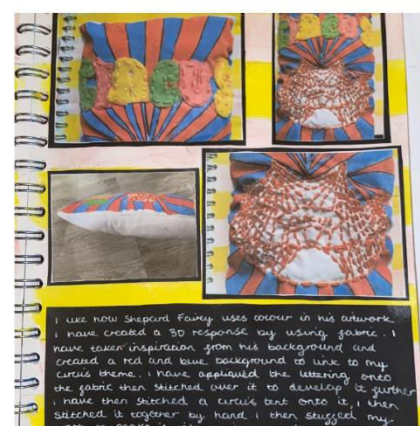 I like how Shepard Fairey uses colour in his artwork.
I have created a 3D response by using fabric. I
have taken inspiration from his background and
created a red and blue background to link to my
circus theme. I have appliqued the lettering onto
the fabric then stitched over it to develop it further
I have then stitched a circus tent onto it, I then
stitched it together by hand I then stuffed my